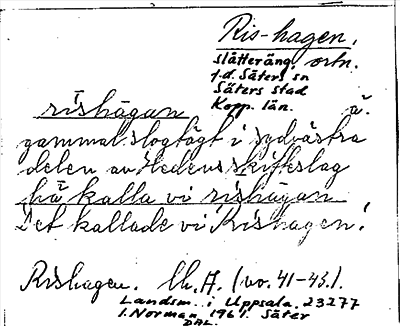 Ris-hagen.
slåtteräng, ortn.
f.d. Säters sn
Säters stad
Kopp. län.
rishågån ä.
gammal slogtägt i sydvästra
delen av Hedens skifteslag
hä kalla vi rishågån
Det kallade vi Rishagen!
Rishagen. Uh. A. (wo. 41-43).
Landsm. i Uppsala. 23277
I. Norman 1961. Säter
DAL.